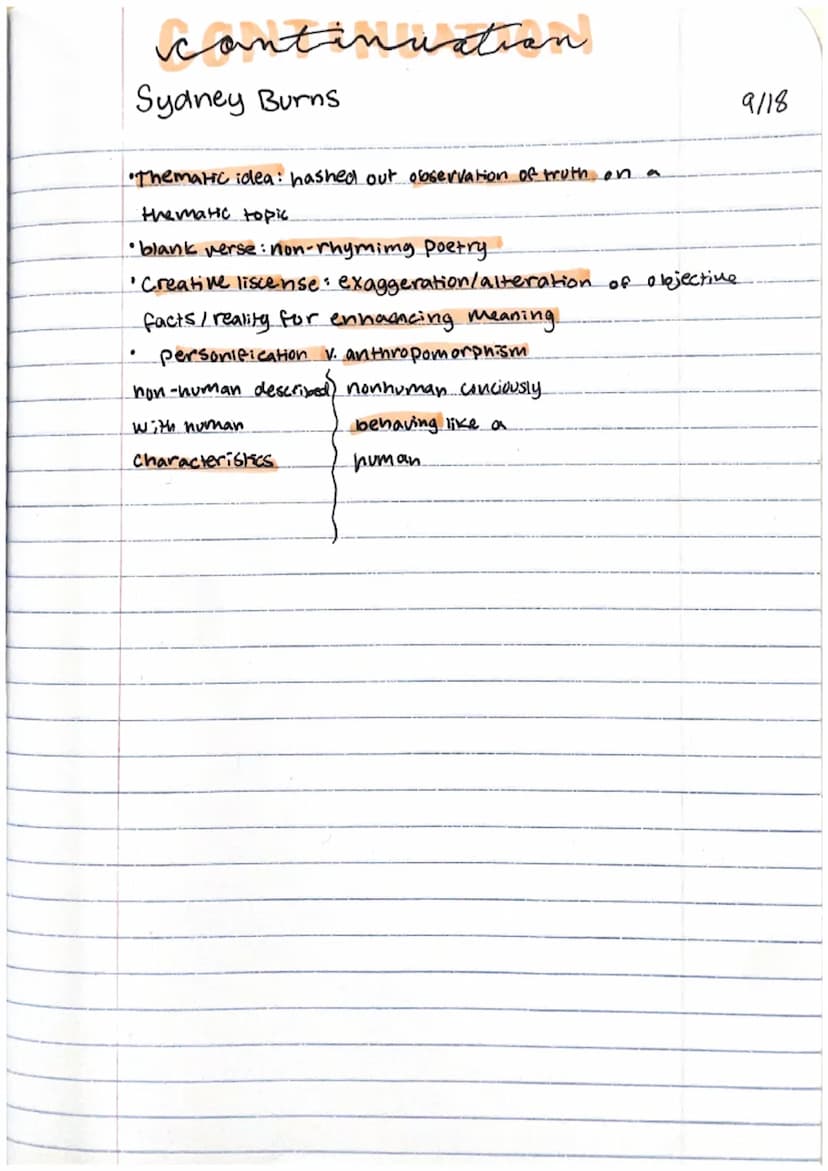 continuation
Sydney Burns
9/18
•Thematic idea: hashed out observation of truth on a
thematic topic
•blank verse: non-rhymimg poetry
•Creative liscense: exaggeration/alteration of objective
facts/reality for enhancing meaning.
• personification v. anthropomorphism
non-human described nonhuman conciously
with human behaving like a
characteristics human